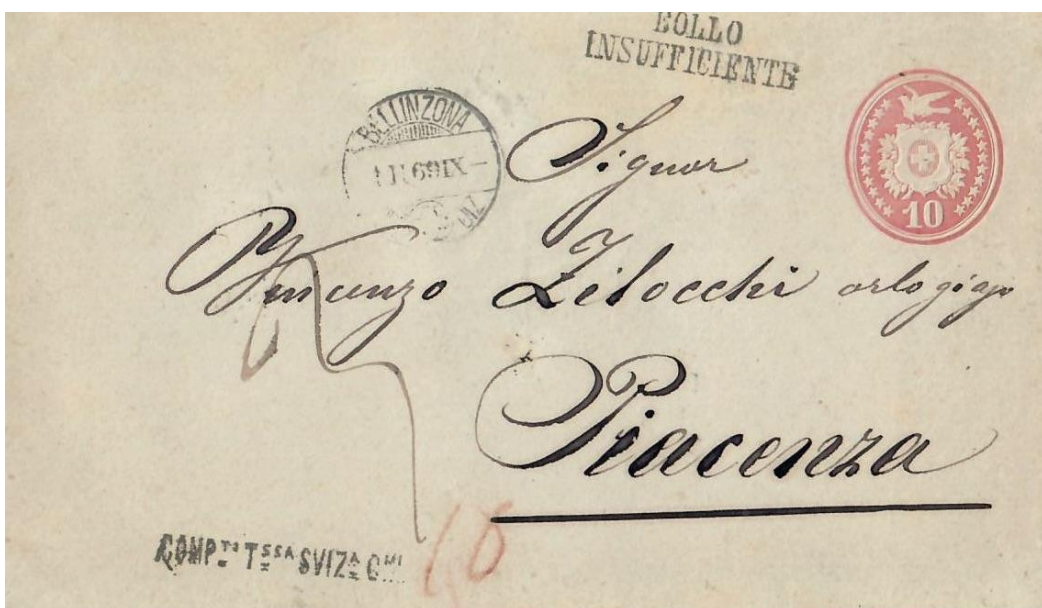 BOLLO
INSUFFICIENTE
BELLINZONA
69IX-
10
Signor
Vincenzo Zilocchi orlogiajo
Piacenza
COMPTO TSSA SVIZA CMI
10